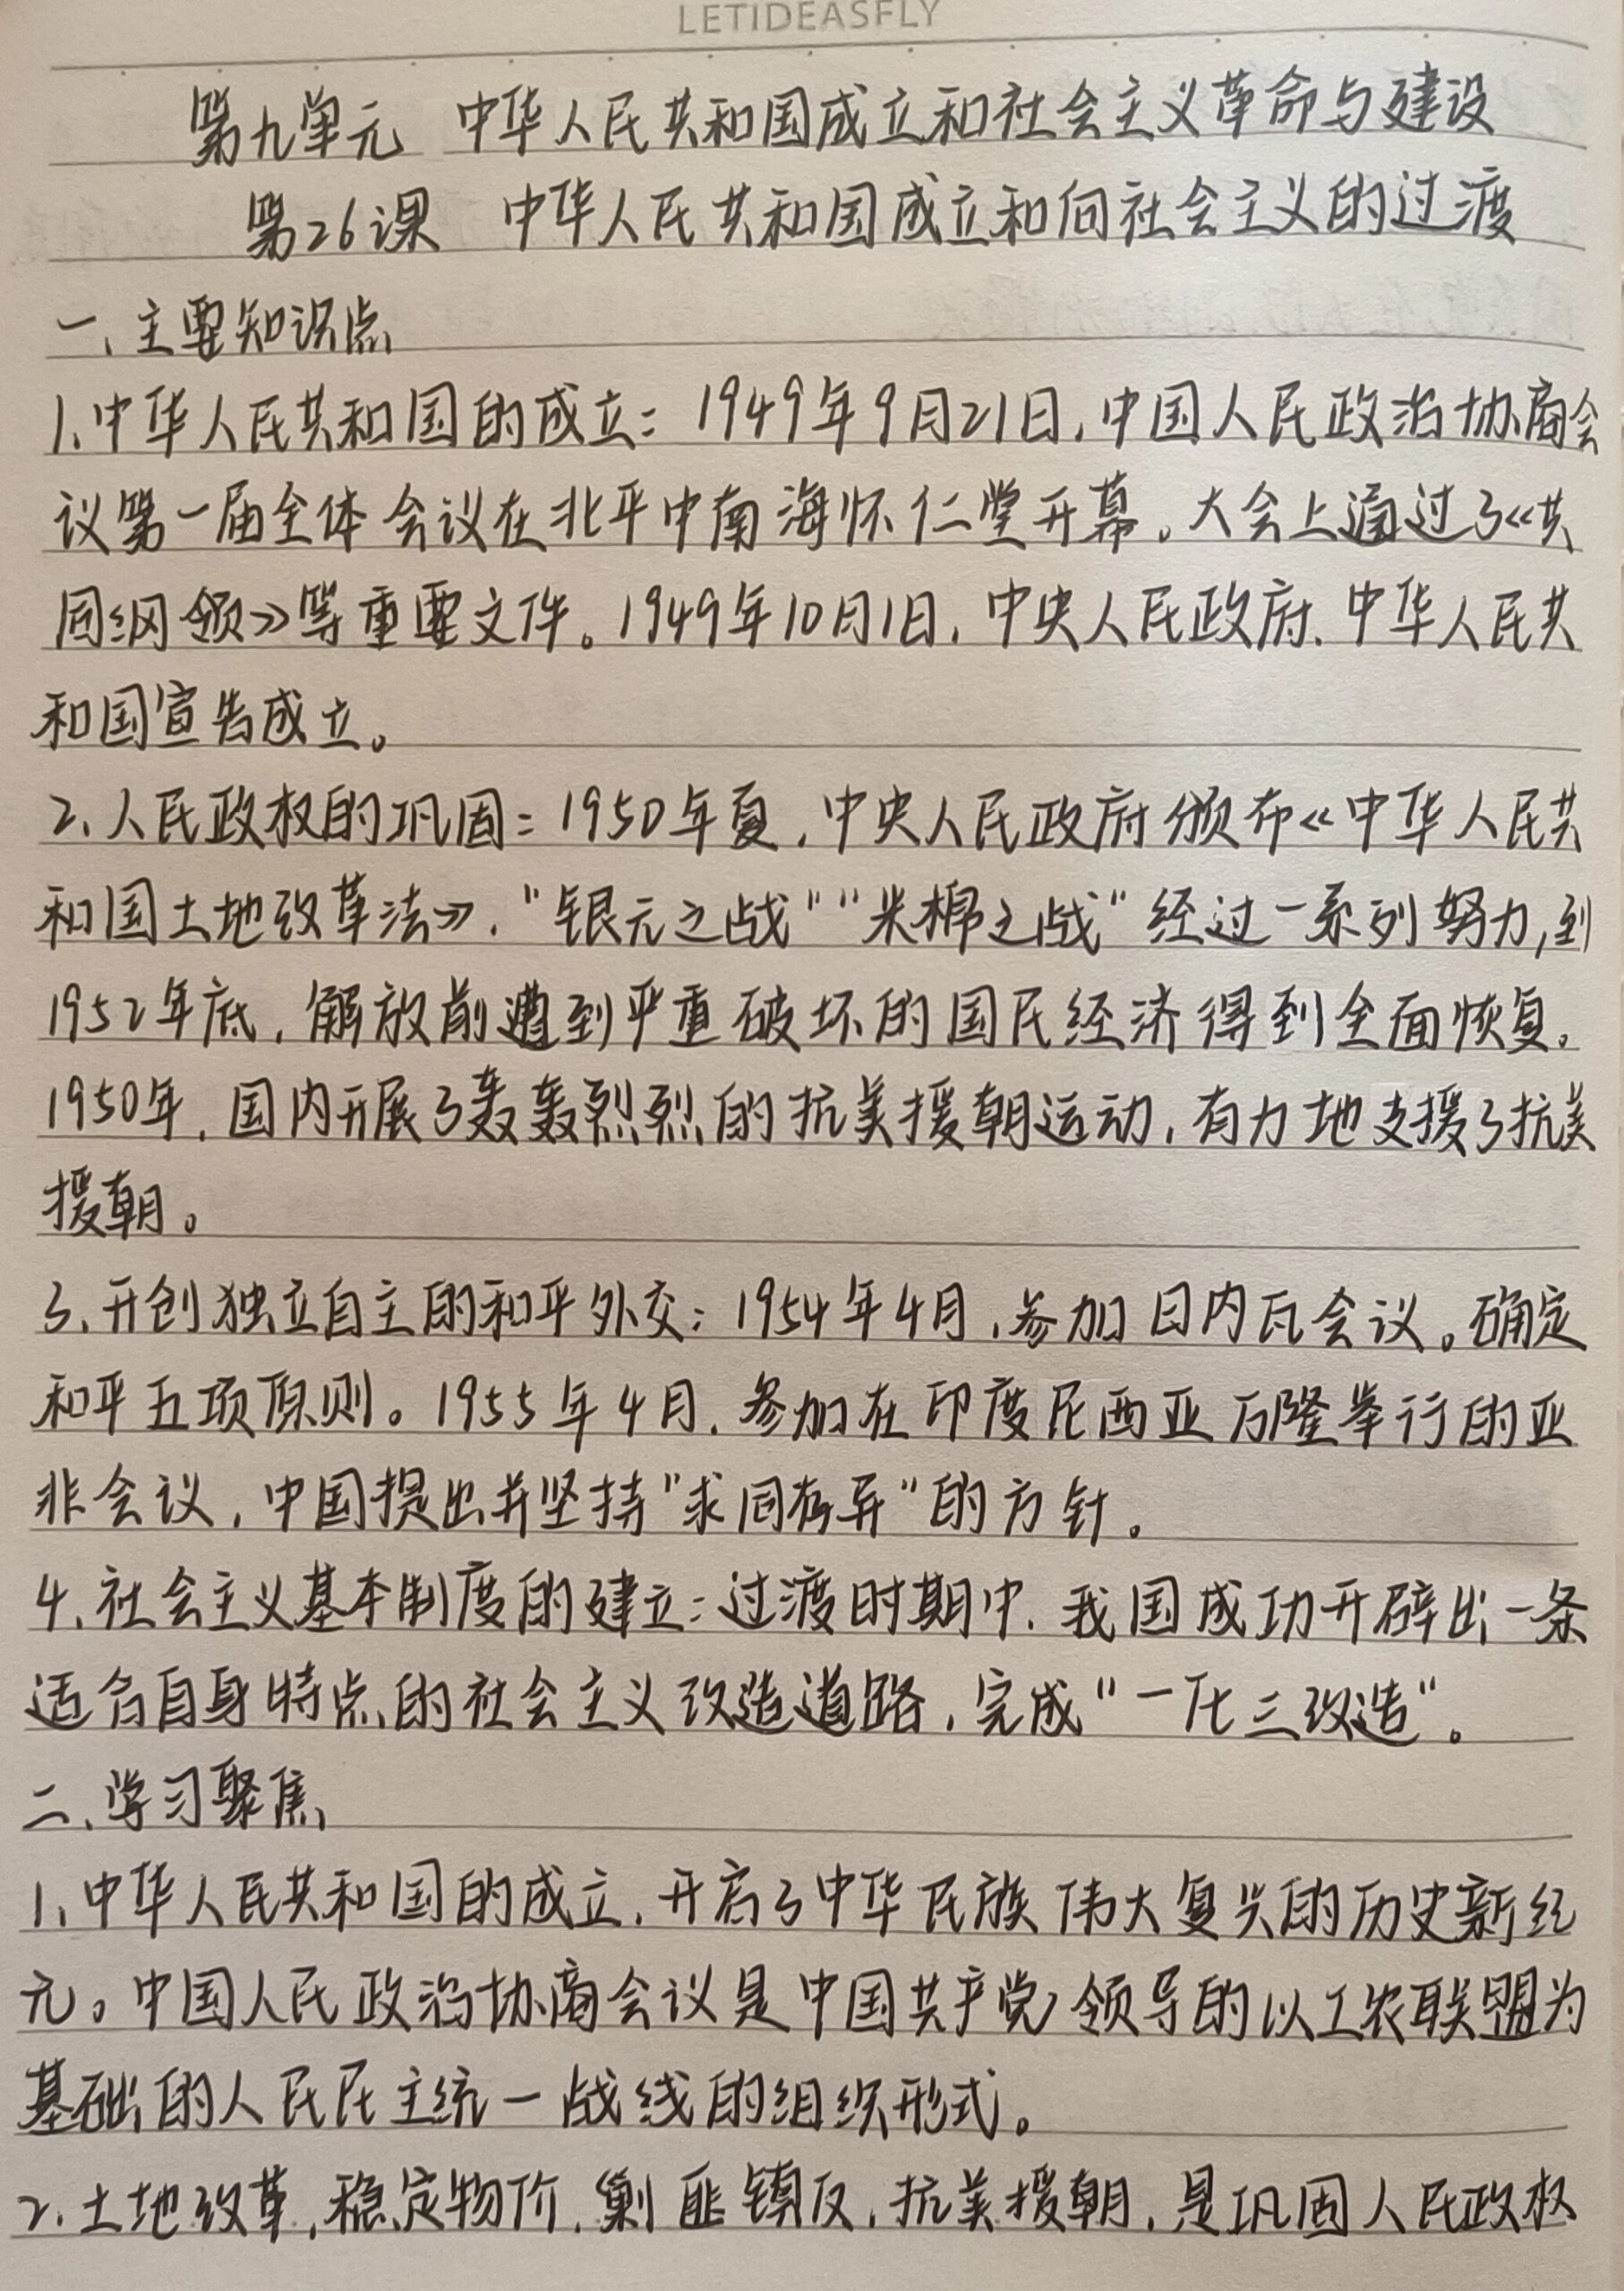 LETIDEASFLY
第九单元 中华人民共和国成立和社会主义革命与建设
第26课 中华人民共和国成立和向社会主义的过渡
一、主要知识点
1、中华人民共和国的成立：1949年9月21日，中国人民政治协商会
议第一届全体会议在北平中南海怀仁堂开幕。大会上通过了《共
同纲领》等重要文件。1949年10月1日，中央人民政府、中华人民共
和国宣告成立。
2、人民政权的巩固：1950年夏，中央人民政府颁布《中华人民共
和国土地改革法》，“银元之战”“米棉之战”经过一系列努力，到
1952年底，解放前遭到严重破坏的国民经济得到全面恢复。
1950年，国内开展了轰轰烈烈的抗美援朝运动，有力地支援了抗美
援朝。
3、开创独立自主的和平外交：1954年4月，参加日内瓦会议。确定
和平五项原则。1955年4月，参加在印度尼西亚万隆举行的亚
非会议，中国提出并坚持“求同存异”的方针。
4、社会主义基本制度的建立：过渡时期中，我国成功开辟出一条
适合自身特点的社会主义改造道路，完成“一化三改造”。
二、学习聚焦
1、中华人民共和国的成立，开启了中华民族伟大复兴的历史新纪
元。中国人民政治协商会议是中国共产党领导的以工农联盟为
基础的人民民主统一战线的组织形式。
2、土地改革，稳定物价，剿匪镇反，抗美援朝，是巩固人民政权